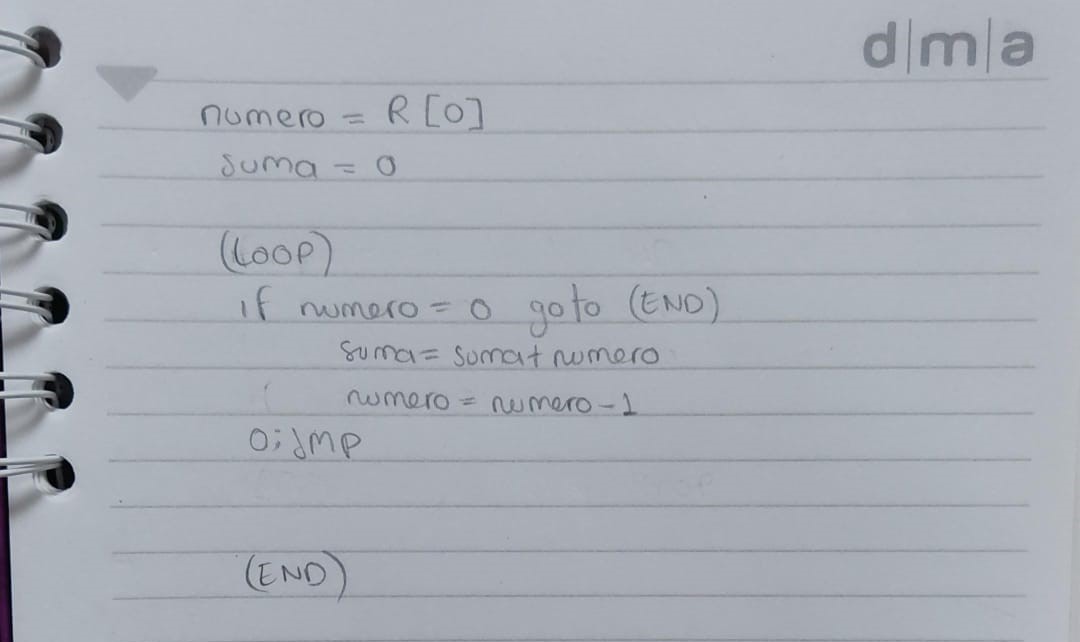 d|m|a
numero = R[0]
suma = 0
(LOOP)
if numero = 0 goto (END)
suma = suma + numero
numero = numero - 1
0;JMP
(END)